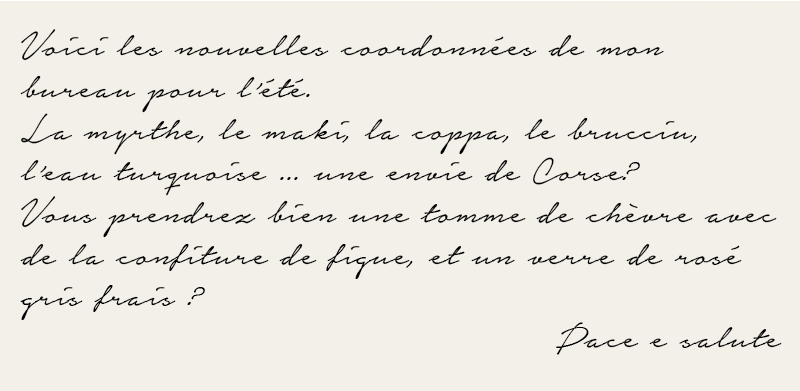 Voici les nouvelles coordonnées de mon
bureau pour l'été.
La myrthe, le maki, la coppa, le brucciu,
l'eau turquoise ... une envie de Corse?
Vous prendrez bien une tomme de chèvre avec
de la confiture de figue, et un verre de rosé
gris frais ?
Pace e salute